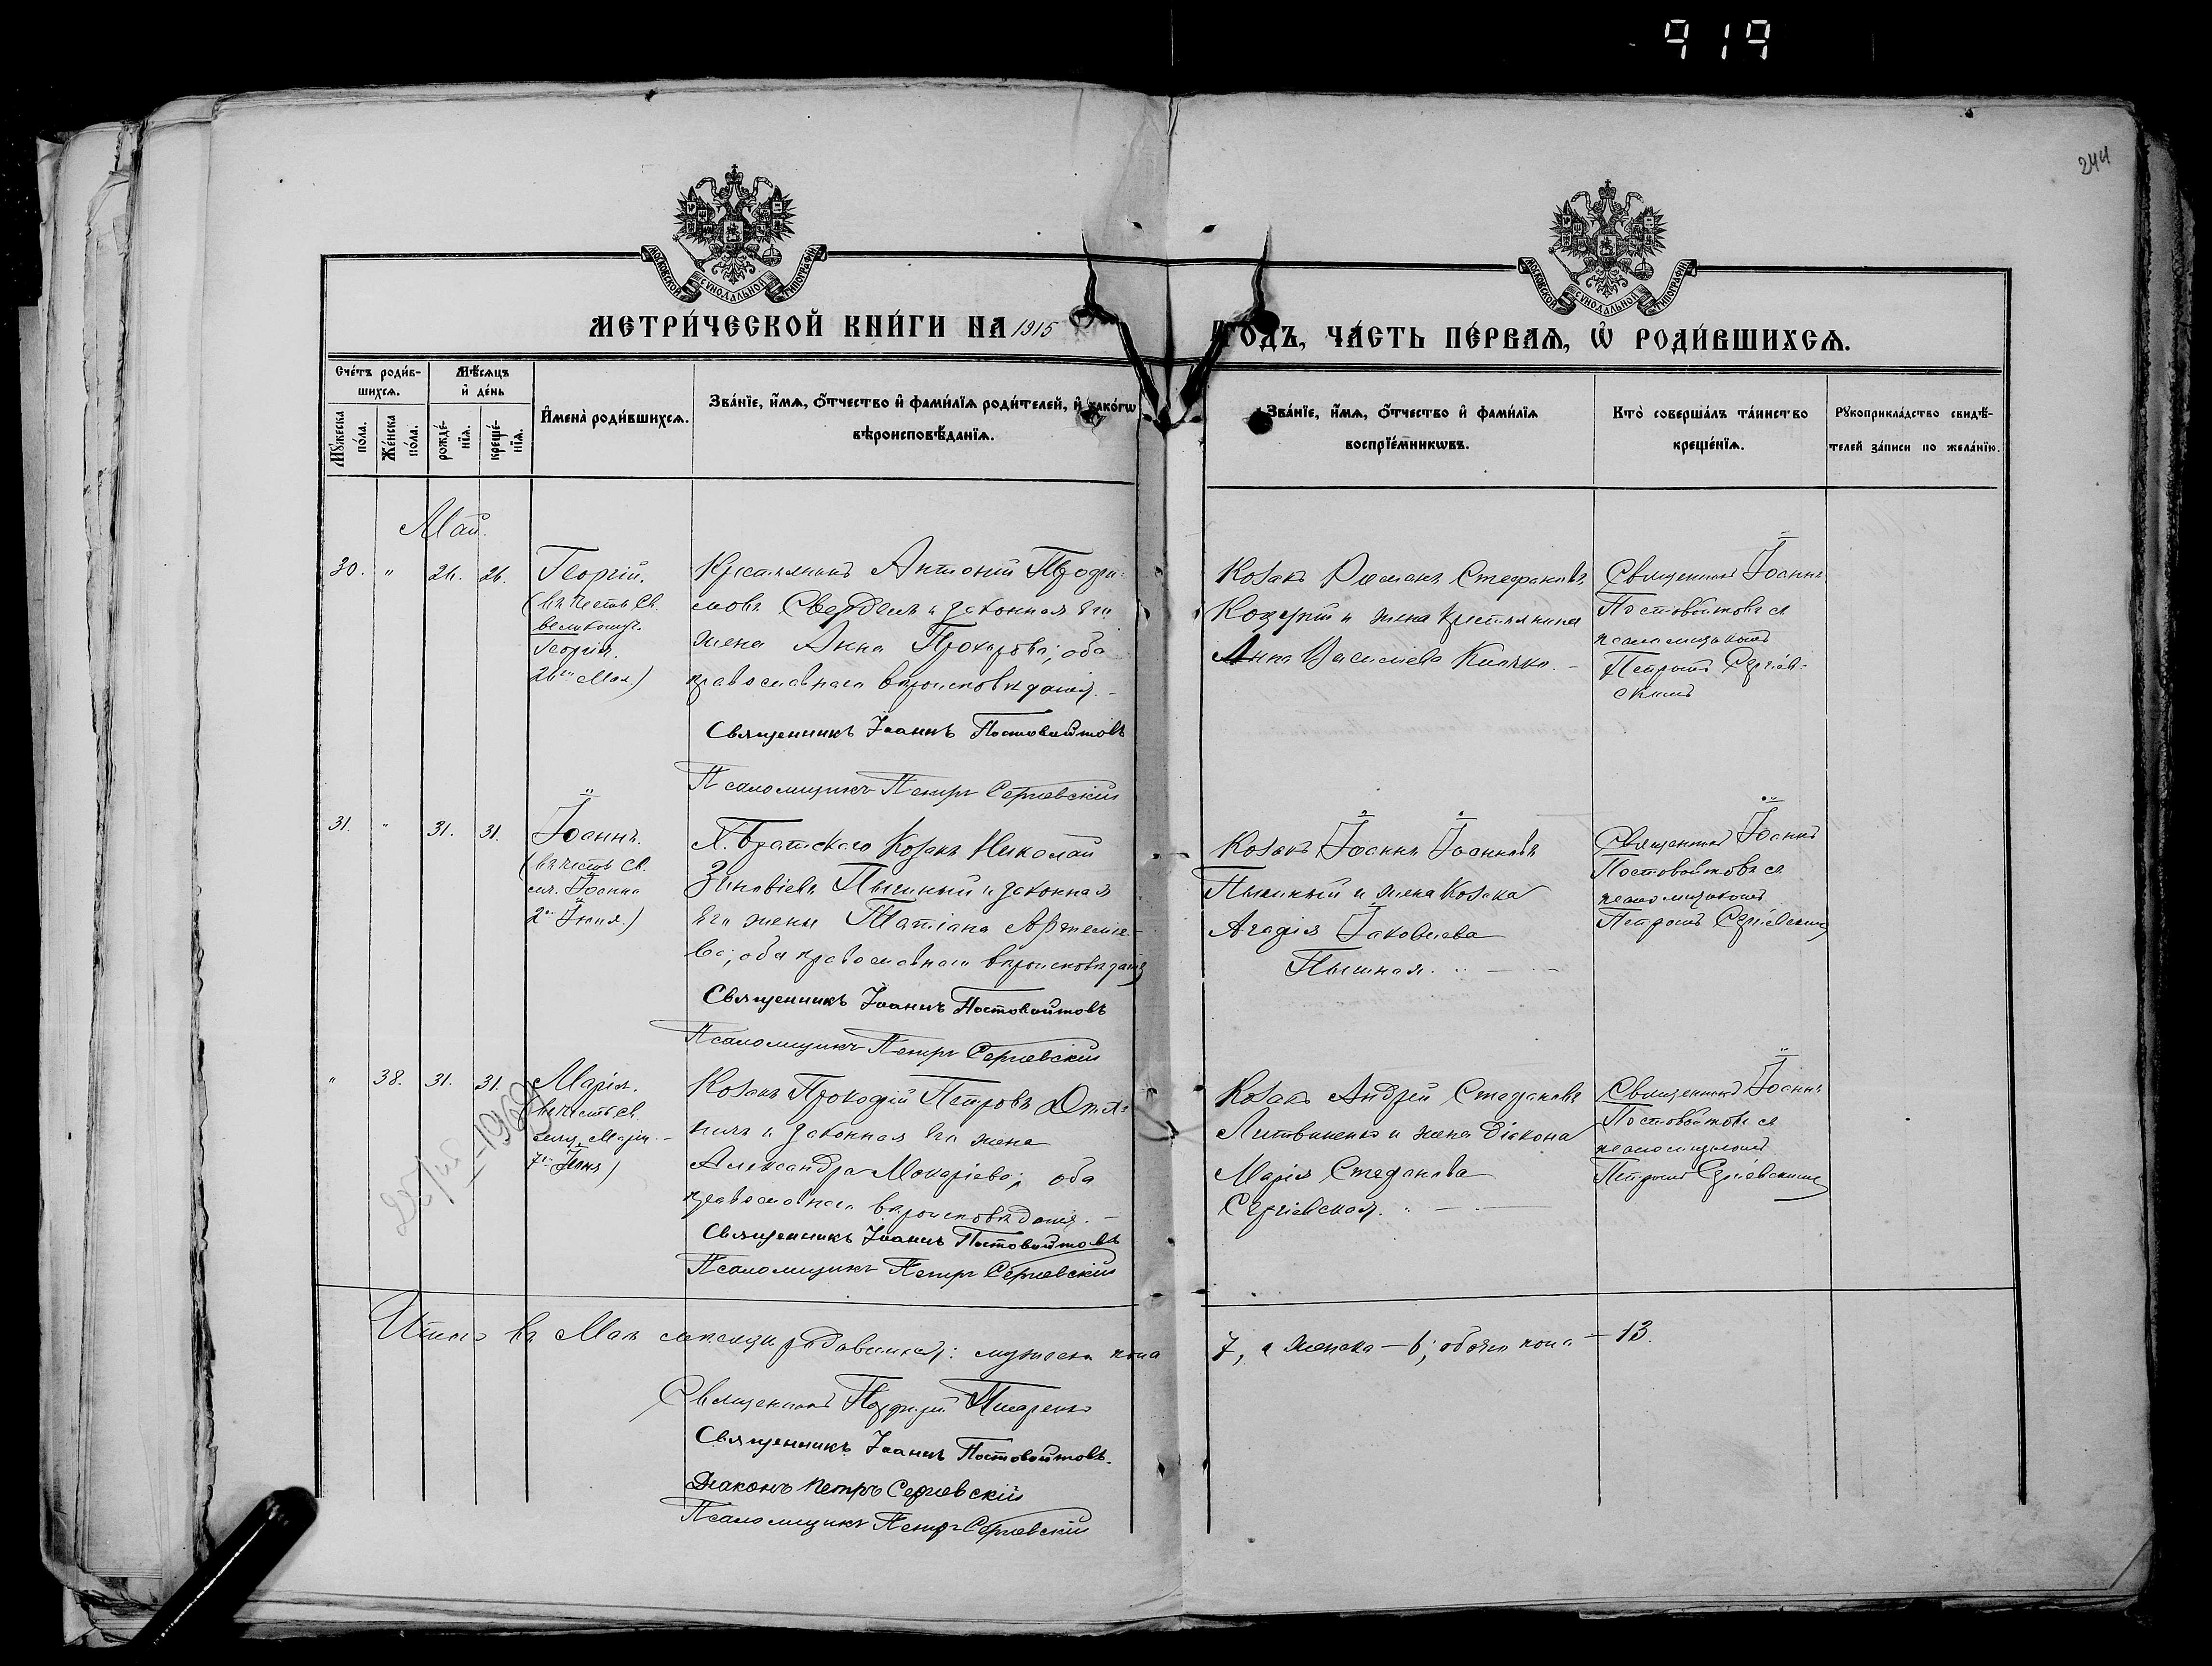 919
244
МОСКОВСКОЙ СѴНОДАЛЬНОЙ ТИПОГРАФІИ
МОСКОВСКОЙ СѴНОДАЛЬНОЙ ТИПОГРАФІИ
МЕТРИ́ЧЕСКОЙ КНИ́ГИ НА 1915
ГОДЪ, ЧА́СТЬ ПЕ́РВАѦ, Ѡ҆ РОДИ́ВШИХСѦ.
Сче́тъ роди́в-
шихсѧ.
Мꙋ́жеска по́ла.
Же́нска по́ла.
Мѣ́сѧцъ
и҆ де́нь
рожде́-
нїѧ.
креще́-
нїѧ.
И҆мена̀ роди́вшихсѧ.
Зва́нїе, и҆́мѧ, ѻ҆́тчество и҆ фами́лїѧ роди́телей, и҆ како́гѡ
вѣроисповѣ́данїѧ.
Зва́нїе, и҆́мѧ, ѻ҆́тчество и҆ фами́лїѧ
воспрїе́мникѡвъ.
Кто̀ соверша́лъ та́инство
креще́нїѧ.
Рꙋкоприкла́дство свидѣ́-
телей за́писи по жела́нїю.
Май.
30. " 26. 26.
Георгій.
(въ честь Св.
великомуч.
Георгія.
26го Мая.)
Крестьянинъ Антоній Трофи-
мовъ Свердель и законная его
жена Анна Прохорова; оба
православнаго вѣроисповѣданія.
Священникъ Іоаннъ Постовойтовъ
Псаломщикъ Петръ Сергіевскій
Козакъ Романъ Стефановъ
и жена крестьянина
Анна Василіева
Священникъ Іоаннъ
Постовойтовъ съ
псаломщикомъ
Петромъ Сергіев-
скимъ
31. " 31. 31.
Іоаннъ.
(въ честь Св.
муч. Іоанна
2го Іюня.)
Х. Братскаго Козакъ Николай
Зиновіевъ Пышный и законная
его жена Татіана Артеміе-
ва; оба православнаго вѣроисповѣданія
Священникъ Іоаннъ Постовойтовъ
Псаломщикъ Петръ Сергіевскій
Козакъ Іоаннъ Іоанновъ
Пышный и жена Козака
Агафія Іаковлева
Пышная.
Священникъ Іоаннъ
Постовойтовъ съ
псаломщикомъ
Петромъ Сергіевскимъ
" 38. 31. 31.
Марія.
(въ честь Св.
муч. Маріи
7го Іюня)
1969
Козакъ Прокофій Петровъ
и законная его жена
Александра Макаріева; оба
православнаго вѣроисповѣданія.
Священникъ Іоаннъ Постовойтовъ
Псаломщикъ Петръ Сергіевскій
Козакъ Андрей Стефановъ
Литвиненко и жена Діакона
Марія Стефанова
Сергіевская.
Священникъ Іоаннъ
Постовойтовъ съ
псаломщикомъ
Петромъ Сергіевскимъ
Итого въ Маѣ мѣсяцѣ родившихся: мужеска пола
7, а женска – 6; обоего пола – 13.
Священникъ Порфирій
Священникъ Іоаннъ Постовойтовъ.
Діаконъ Петръ Сергіевскій
Псаломщикъ Петръ Сергіевскій